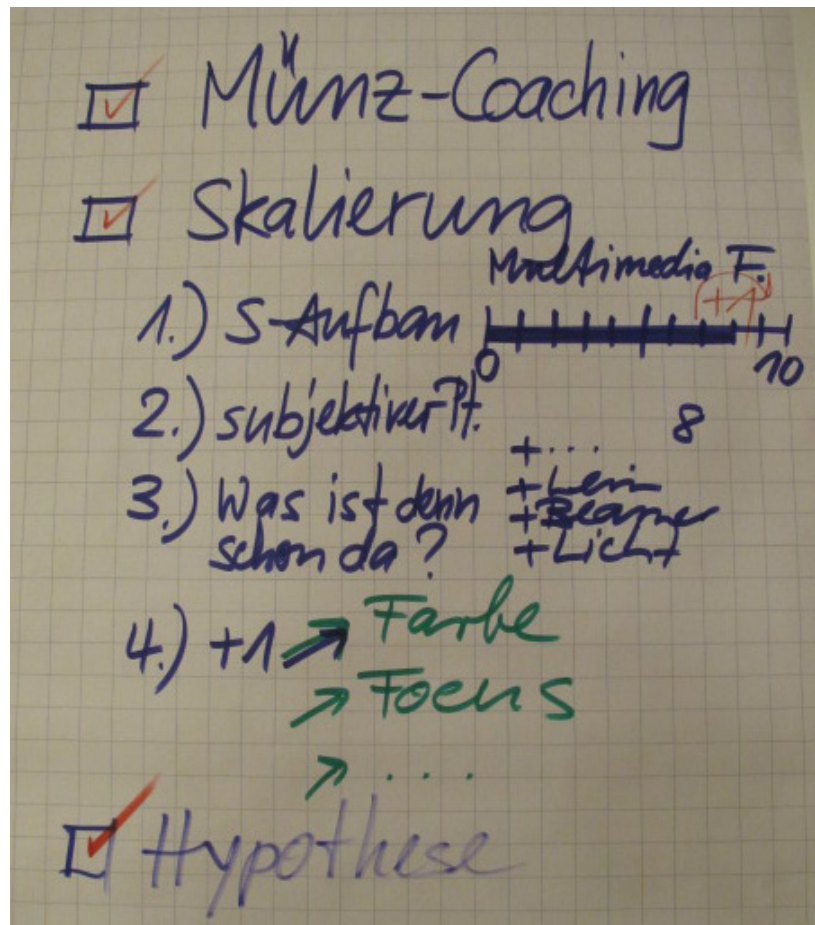 Münz-Coaching
Skalierung
Multimedia F.
1.) S-Aufbau
+1
0
10
2.) subjektiver Pt.
8
3.) Was ist denn
schon da?
+...
+Lein
+Beamer
+Licht
4.) +1 → Farbe
→ Focus
→ ...
Hypothese